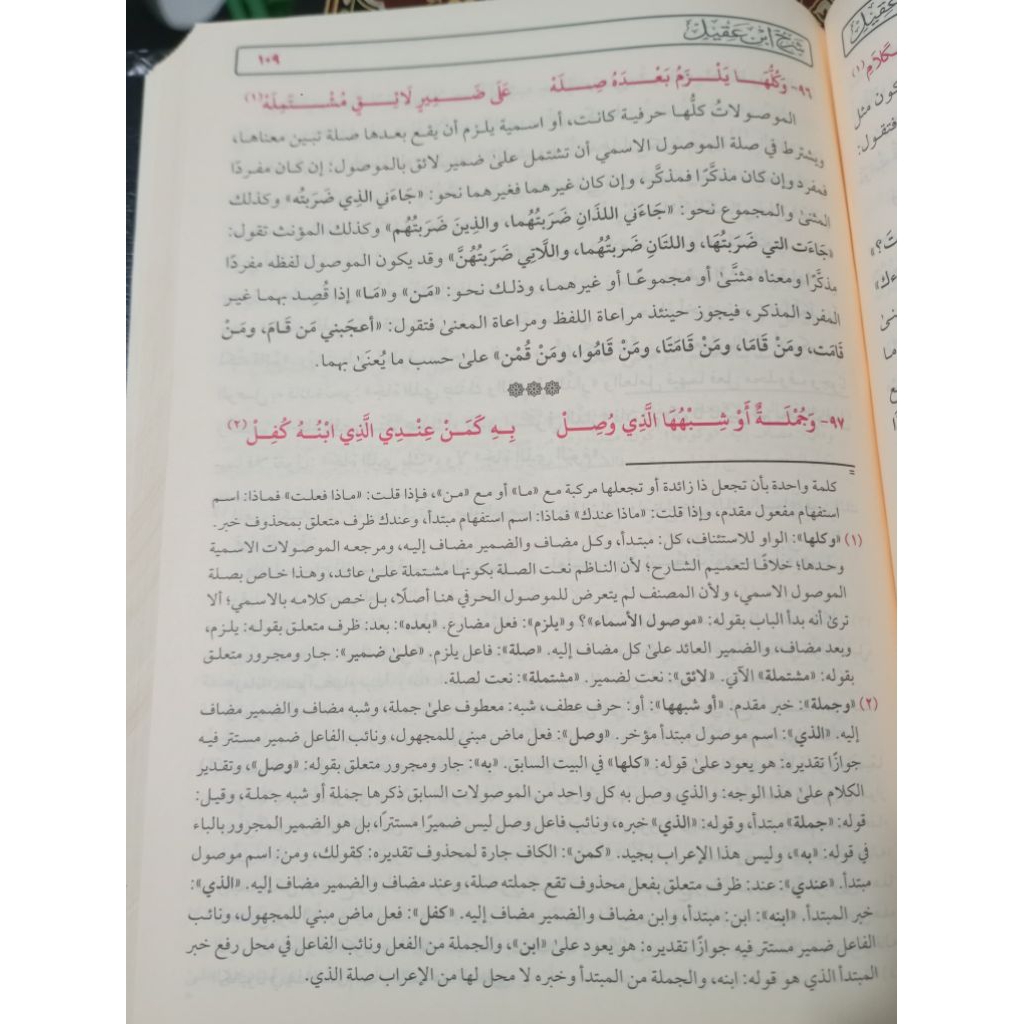 شرح ابن عقيل
١٠٩
٩٦- وَكُلُّهَا يَلْزَمُ بَعْدَهُ صِلَهْ عَلَىٰ ضَمِيرٍ لَائِقٍ مُشْتَمِلَهْ(١)
الموصولاتُ كلُّها حرفية كانت، أو اسمية يلزم أن يقع بعدها صلة تبين معناها،
ويشترط في صلة الموصول الاسمي أن تشتمل علىٰ ضمير لائق بالموصول: إن كان مفردًا
فمفرد وإن كان مذكَّرًا فمذكَّر، وإن كان غيرهما فغيرهما نحو: «جَاءَني الذِي ضَرَبتُه» وكذلك
المثنىٰ والمجموع نحو: «جَاءَني اللذَانِ ضَرَبتُهُما، والذِينَ ضَرَبتُهُم» وكذلك المؤنث تقول:
«جَاءَت التي ضَرَبتُهَا، واللتَانِ ضَربتُهُما، واللَّاتِي ضَرَبتُهُنَّ» وقد يكون الموصول لفظه مفردًا
مذكَّرًا ومعناه مثنَّىٰ أو مجموعًا أو غيرهما، وذلك نحو: «مَن» و«مَا» إذا قُصِد بهما غير
المفرد المذكر، فيجوز حينئذ مراعاة اللفظ ومراعاة المعنىٰ فتقول: «أعجَبني مَن قَامَ، ومَنْ
قَامَت، ومَنْ قَامَا، ومَنْ قَامَتَا، ومَنْ قَامُوا، ومَنْ قُمْن» علىٰ حسب ما يُعنَىٰ بهما.
٩٧- وَجُمْلَةٌ أَوْ شِبْهُهَا الَّذِي وُصِلْ بِهِ كَمَنْ عِنْدِي الَّذِي ابْنُهُ كُفِلْ(٢)
=
كلمة واحدة بأن تجعل ذا زائدة أو تجعلها مركبة مع «ما» أو مع «من»، فإذا قلت: «ماذا فعلت» فماذا: اسم
استفهام مفعول مقدم، وإذا قلت: «ماذا عندك» فماذا: اسم استفهام مبتدأ، وعندك ظرف متعلق بمحذوف خبر.
(١) «وكلها»: الواو للاستئناف، كل: مبتدأ، وكل مضاف والضمير مضاف إليه، ومرجعه الموصولات الاسمية
وحدها؛ خلافًا لتعميم الشارح؛ لأن الناظم نعت الصلة بكونها مشتملة علىٰ عائد، وهذا خاص بصلة
الموصول الاسمي، ولأن المصنف لم يتعرض للموصول الحرفي هنا أصلًا، بل خص كلامه بالاسمي؛ ألا
ترىٰ أنه بدأ الباب بقوله: «موصول الأسماء»؟ و«يلزم»: فعل مضارع. «بعده»: بعد: ظرف متعلق بقوله: يلزم،
وبعد مضاف، والضمير العائد علىٰ كل مضاف إليه. «صلة»: فاعل يلزم. «علىٰ ضمير»: جار ومجرور متعلق
بقوله: «مشتملة» الآتي. «لائق»: نعت لضمير. «مشتملة»: نعت لصلة.
(٢) «وجملة»: خبر مقدم. «أو شبهها»: أو: حرف عطف، شبه: معطوف علىٰ جملة، وشبه مضاف والضمير مضاف
إليه. «الذي»: اسم موصول مبتدأ مؤخر. «وصل»: فعل ماض مبني للمجهول، ونائب الفاعل ضمير مستتر فيه
جوازًا تقديره: هو يعود علىٰ قوله: «كلها» في البيت السابق. «به»: جار ومجرور متعلق بقوله: «وصل»، وتقدير
الكلام علىٰ هذا الوجه: والذي وصل به كل واحد من الموصولات السابق ذكرها جملة أو شبه جملة، وقيل:
قوله: «جملة» مبتدأ، وقوله: «الذي» خبره، ونائب فاعل وصل ليس ضميرًا مستترًا، بل هو الضمير المجرور بالباء
في قوله: «به»، وليس هذا الإعراب بجيد. «كمن»: الكاف جارة لمحذوف تقديره: كقولك، ومن: اسم موصول
مبتدأ. «عندي»: عند: ظرف متعلق بفعل محذوف تقع جملته صلة، وعند مضاف والضمير مضاف إليه. «الذي»:
خبر المبتدأ. «ابنه»: ابن: مبتدأ، وابن مضاف والضمير مضاف إليه. «كفل»: فعل ماض مبني للمجهول، ونائب
الفاعل ضمير مستتر فيه جوازًا تقديره: هو يعود علىٰ «ابن»، والجملة من الفعل ونائب الفاعل في محل رفع خبر
المبتدأ الذي هو قوله: ابنه، والجملة من المبتدأ وخبره لا محل لها من الإعراب صلة الذي.